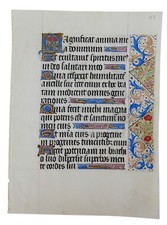 Magnificat anima me
a dominum
Et exultavit spiritus
meus in deo salutari meo
Quia respexit humilitate
ancille sue ecce enim ex hoc
beatam me dicent omnes gene
rationes
Quia fecit michi magna
qui potens est et sanctum no
men eius
Et misericordia eius a
progenie in progenies
timentibus eum
Fecit potentiam in bra
chio suo dispersit superbos men
te cordis sui